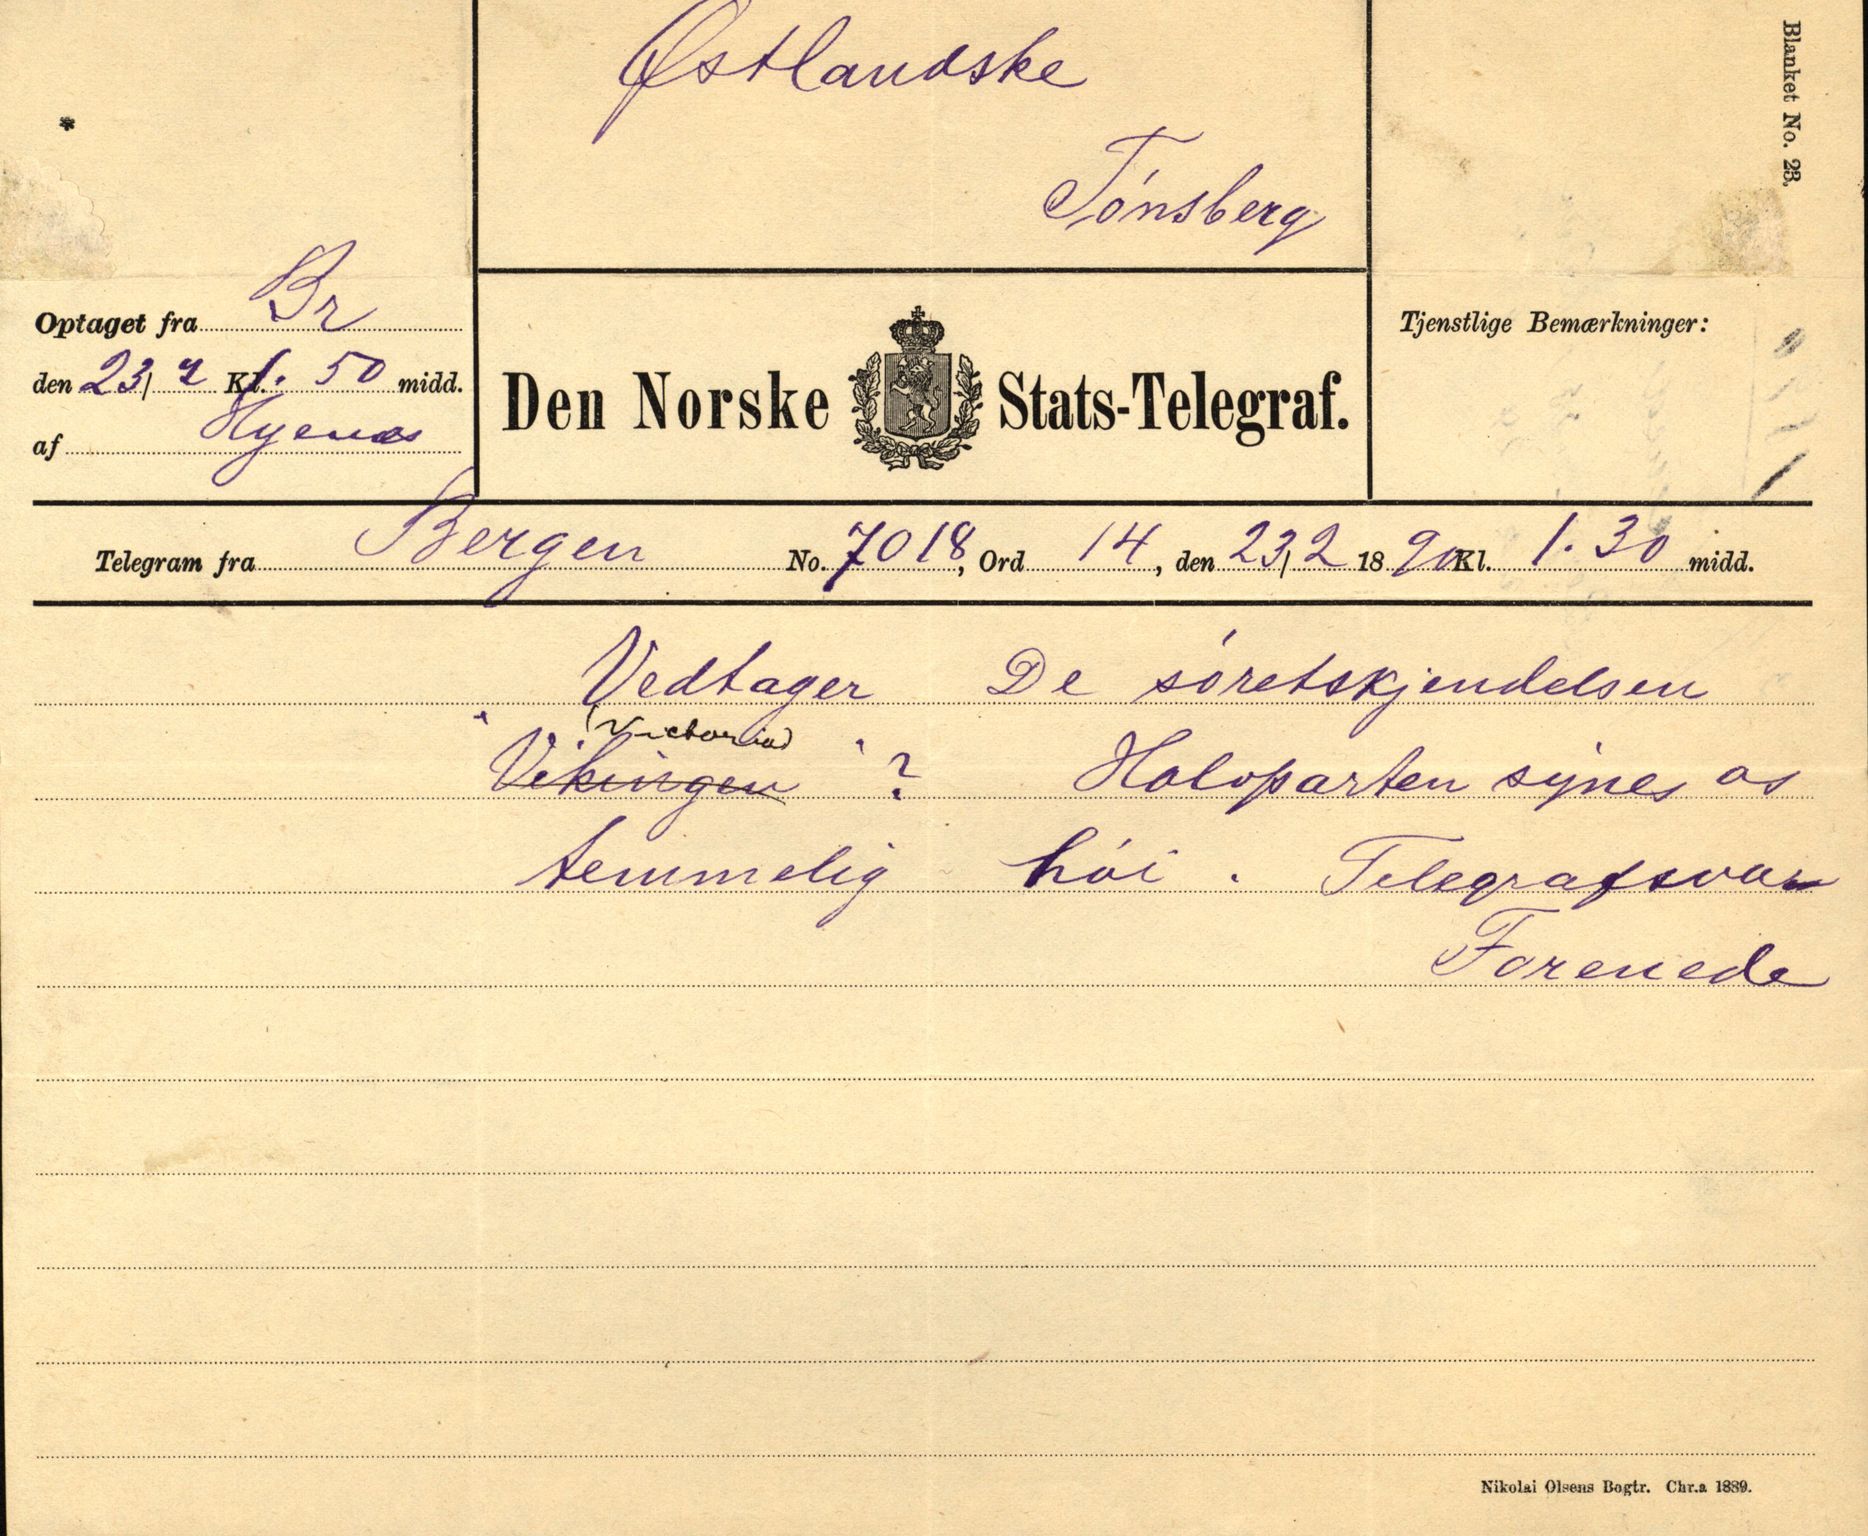 Østlandske
Tønsberg
Blanket No. 23.
Optaget fra Br
den 23/2 Kl. 1.50 midd.
af Hyenæs
Den Norske Stats-Telegraf.
Tjenstlige Bemærkninger:
Telegram fra Bergen No. 7018, Ord 14, den 23/2 1890 Kl. 1.30 midd.
Vedtager De søretskjendelsen
(Victoria)
"Vikingen" ? Halvparten synes os
temmelig høi. Telegrafsvar
Forenede
Nikolai Olsens Bogtr. Chr.a 1889.